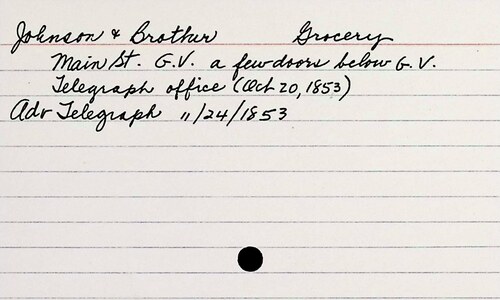 Johnson & Brother Grocery
Main St. G.V. a few doors below G.V.
Telegraph office (Oct 20, 1853)
Adv Telegraph 11/24/1853